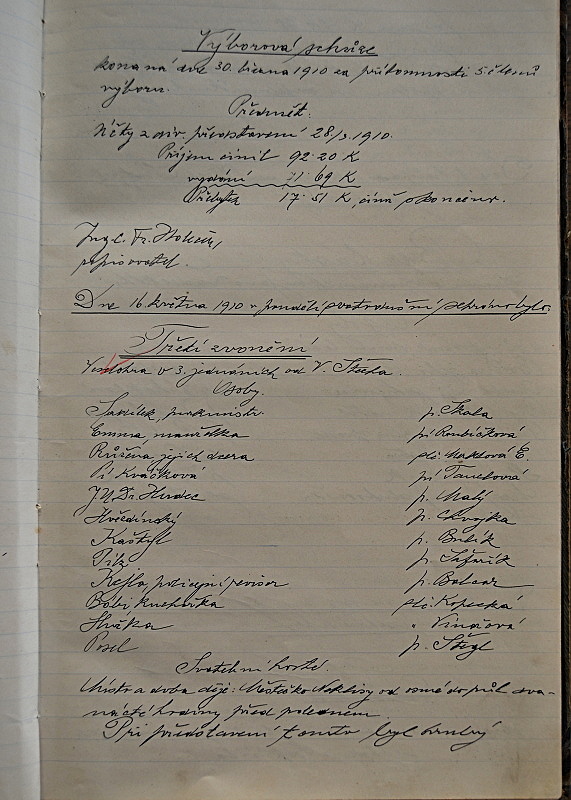 Výborová schůze
konaná dne 30. března 1910 za přítomnosti 5 členů
výboru.
Předmět.
Účty z div. představení 28./3. 1910.
Příjem činil 92·20 K
vydání 71 69 K
Přebytek 17·51 K, čímž skončeno.
Ing. C. Fr.
zapisovatel.
Dne 16. května 1910 v pondělí svatodušní sehráno bylo:
Třetí zvonění
Veselohra v 3. jednáních od V. Štecha.
Osoby.
Jasílek, purkmistr. p. Skala
Emma, manželka pí Roubíčková
Růžena, jejich dcera slč. E.
Pí. Kváčková pí
JUDr. p. Malý
p. Chvojka
Kaštyl p. Bublík
Pilz p.
Kejla, policejní revisor p.
Bábi kuchařka slč. Kopecká
Služka „ Vinařová
Posel p. Štégl
Svatební hosté.
Místo a doba děje: Městečko Naklisy od osmé do půl dva-
nácté hodiny před polednem.
Při představení tomto byl hrubý